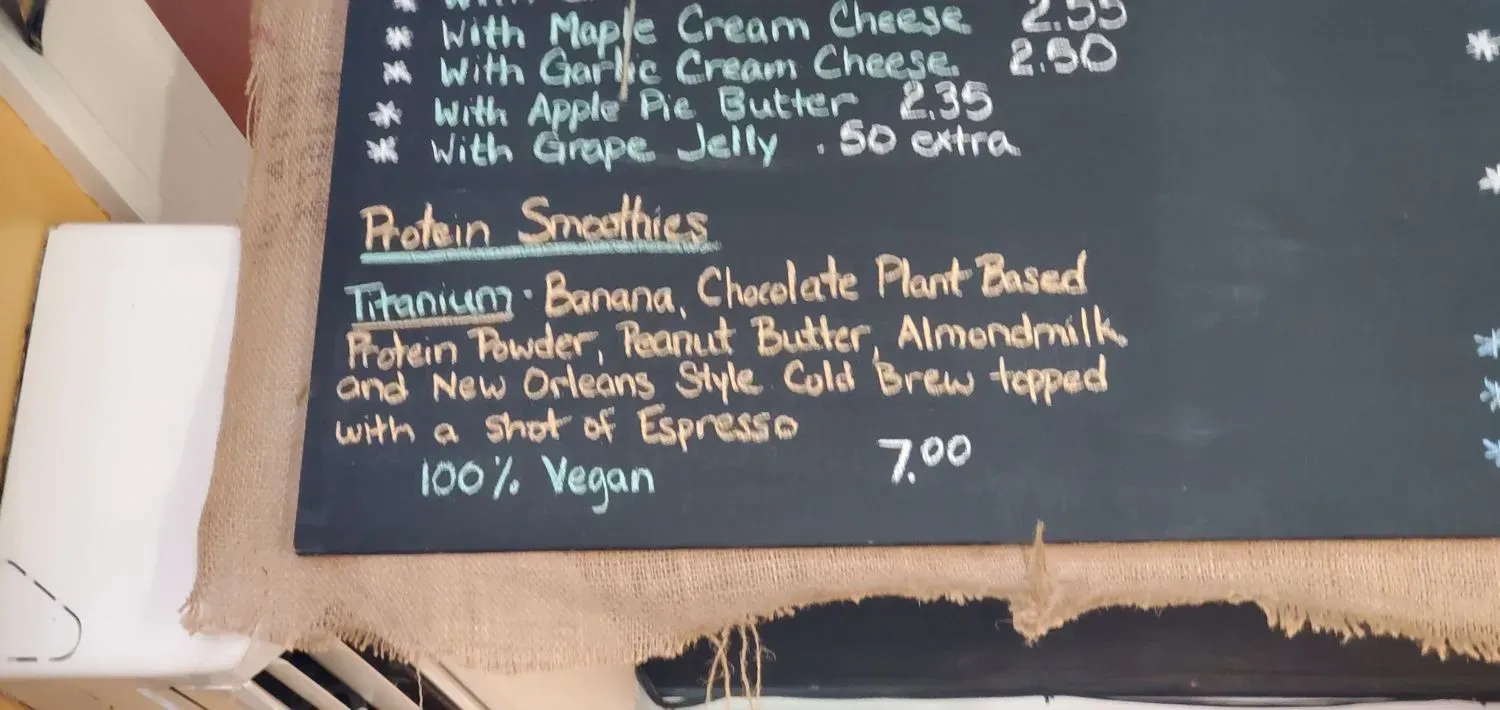 * With
* With Maple Cream Cheese 2.55
* With Garlic Cream Cheese 2.50
* With Apple Pie Butter 2.35
* With Grape Jelly .50 extra
Protein Smoothies
Titanium · Banana, Chocolate Plant Based
Protein Powder, Peanut Butter, Almondmilk,
and New Orleans Style Cold Brew topped
with a shot of Espresso
100% Vegan 7.00